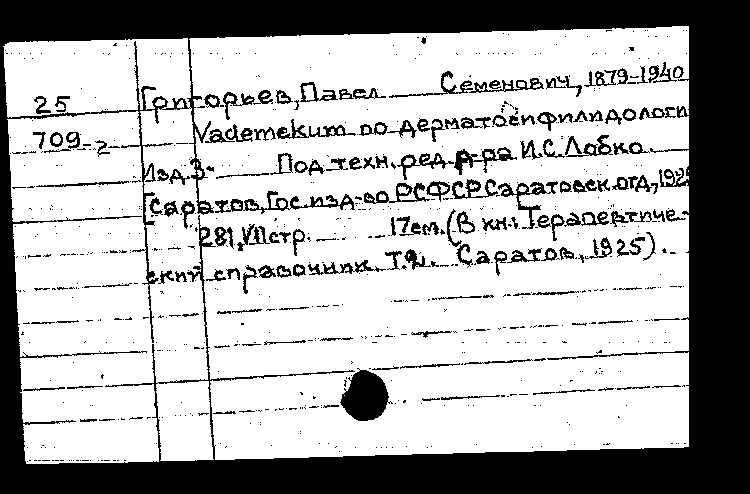 25
709-2
Григорьев, Павел Семенович, 1879-1940
Vademekum по дерматосифилидологи
Изд. 3- Под техн. ред. д-ра И.С. Лабко.
[Саратов, Гос. изд-во РСФСР Саратовск. отд., 1925
281, VII стр. 17 см. (В кн.: Терапевтиче-
ский справочник. Т. Саратов, 1925).